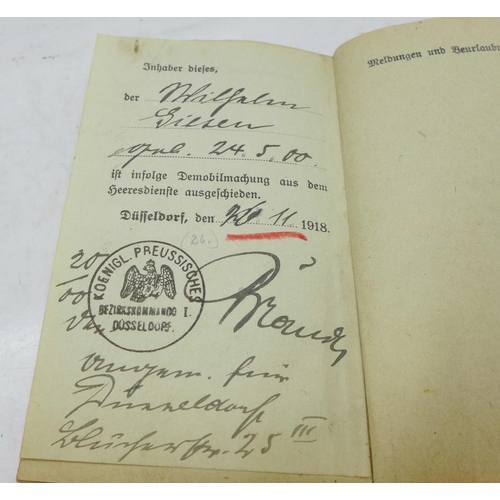 Inhaber dieses,
der Wilhelm
Giesen
geb. 24.5.00.
ist infolge Demobilmachung aus dem
Heeresdienste ausgeschieden.
Düsseldorf, den 26 11 1918.
(26.)
KOENIGL. PREUSSISCHES
BEZIRKSKOMMANDO I.
DÜSSELDORF.
angem. für
Düsseldorf
Blücherstr. 25 III
Meldungen und Beurlaubu